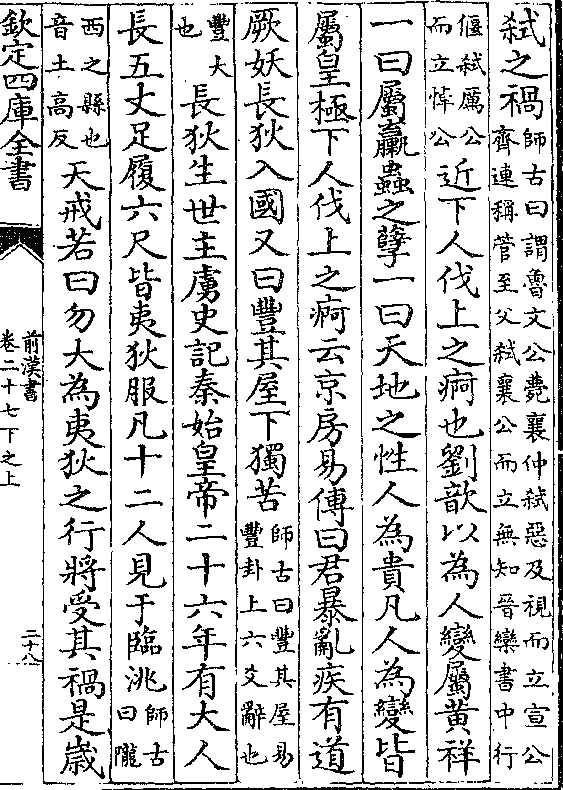 弑之禍師古曰謂魯文公薨襄仲弑惡及視而立宣公齊連稱管至父弑襄公而立無知晉欒書中行
偃弑厲公而立悼公近下人伐上之痾也劉歆以為人變屬黄祥
一曰屬臝蟲之孽一曰天地之性人為貴凡人為變皆
屬皇極下人伐上之痾云京房易傳曰君暴亂疾有道
厥妖長狄入國又曰豐其屋下獨苦師古曰豐其屋易豐卦上六爻辭也
豐大也長狄生世主虜史記秦始皇帝二十六年有大人
長五丈足履六尺皆夷狄服凡十二人見于臨洮師古曰隴
西之縣也音土高反天戒若曰勿大為夷狄之行將受其禍是歳
欽定四庫全書
前漢書
卷二十七下之上
二十八